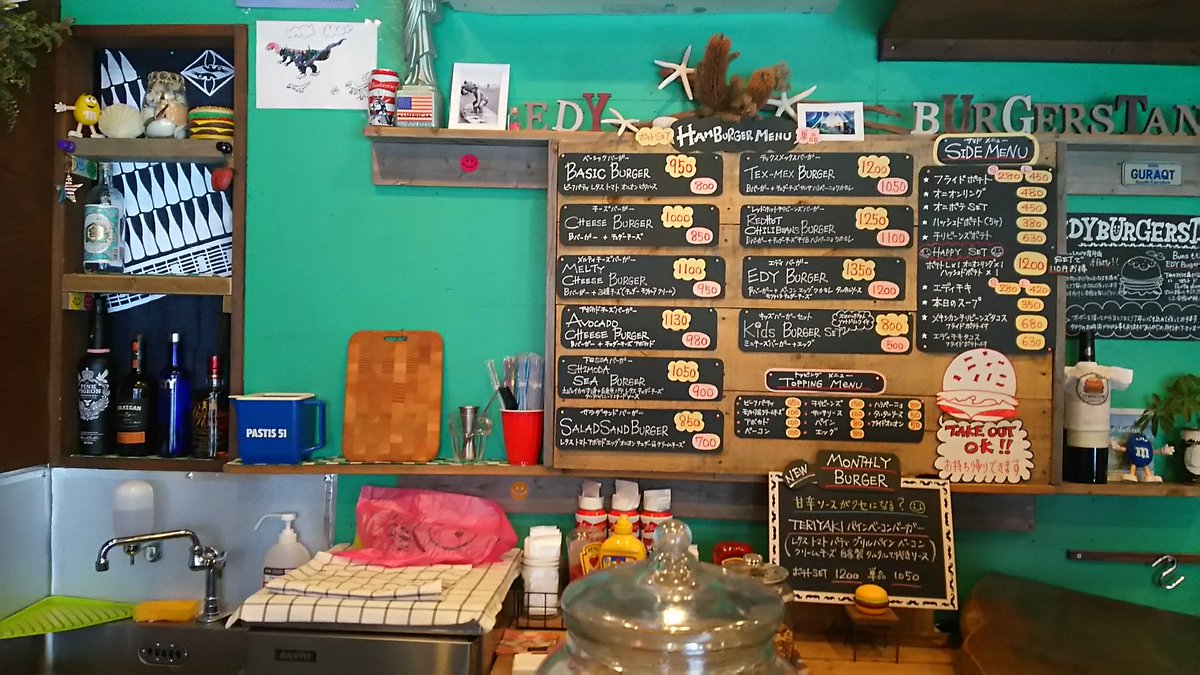 EDY BURGERSTAN
Budweiser
AMERICA
ポテトSET
HAMBURGER MENU
単品
ベーシックバーガー
BASIC BURGER
950
800
チーズバーガー
CHEESE BURGER
1000
Bバーガー + チェダーチーズ
850
メルティチーズバーガー
MELTY
CHEESE BURGER
1100
950
アボカドチーズバーガー
AVOCADO
CHEESE BURGER
1130
Bバーガー + チェダーチーズ アボカド
980
SHIMODA
SEA BURGER
1050
900
サラダサンドバーガー
SALAD SAND BURGER
850
700
テックスメックスバーガー
TEX-MEX BURGER
1200
1050
レッドホットチリビーンズバーガー
RED HOT
CHILIBEANS BURGER
1250
1100
エディバーガー
EDY BURGER
1350
1200
キッズバーガーセット
KIDS BURGER SET
800
ミニチーズバーガー+エッグ
500
トッピング メニュー
TOPPING MENU
ビーフパティ
チリビーンズ
アボカド
サルサソース
パイン
ベーコン
エッグ
サイド メニュー
SIDE MENU
フライドポテト S 280 L 450
オニオンリング 480
オニポテ SET 450
ハッシュドポテト(5ヶ) 380
チリビーンズポテト 630
HAPPY SET
ポテトL×1 オニオンリング×1
ハッシュドポテト×1
1200
エディチキ 280 420
本日のスープ 350
メキシカンチリビーンズタコス 680
フライドポテト付
エディチキタコス 630
フライドポテト付
TAKE OUT
OK!!
お持ち帰りできます
GURAQT
South Carolina
EDYBURGERST
PINK PIGEON
PASTIS 51
SANYO
NEW
MONTHLY
BURGER
甘辛ソースがクセになる?
TERIYAKI パインベーコンバーガー
(レタス トマト パティ グリルパイン ベーコン
クリームチーズ 自家製 タルタル てりやきソース)
ポテトSET 1200 単品 1050
m